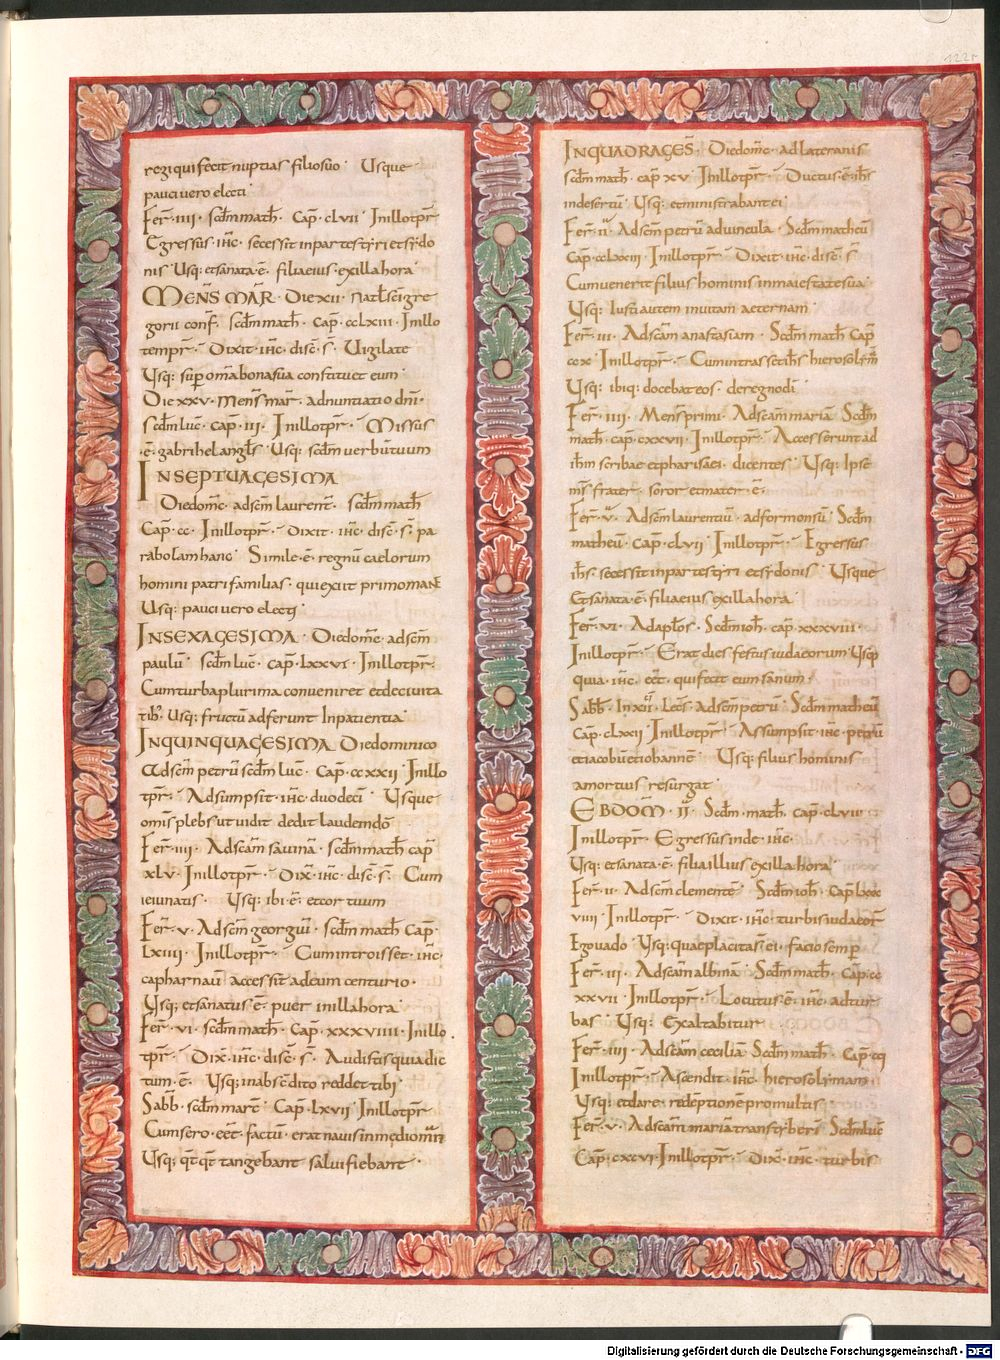 regi qui fecit nuptias filio suo · Usque
pauci vero electi
Fer̄ · IIII · scdm math̄ · Cap̄ · clvii · In illo tpr̄
Egressus · ihc̄ · secessit in partes tyri et sydo
nis Usq: et sanata · ē · filia eius · ex illa hora ·
MENS̄ MAR̄ · Die XII · Nat̄l · sc̄i gre
gorii conf̄ · scdm math̄ · Cap̄ · cclxiii · In illo
tempr̄ · Dixit · ihc̄ · disc̄ · s̄ · Vigilate
Usq: sup̄ om̄a bona sua constituet eum ·
Die XXV · mens̄ mar̄ · adnuntiatio dn̄i ·
scdm luc̄ · cap̄ · III · In illo tpr̄ · Missus
· ē · gabrihel angl̄s · Usq: scdm verbu tuum
IN SEPTUAGESIMA
Die dom̄c · ad sc̄m laurent̄ · scdm math̄
Cap̄ · cc · In illo tpr̄ · Dixit · ihc̄ · disc̄ · s̄ · pa
rabolam hanc · Simile · ē · regnū caelorum
homini patri familias · qui exiit primo mane
Usq: pauci vero electi ·
IN SEXAGESIMA · Die dom̄c · ad sc̄m
paulū · scdm luc̄ · cap̄ · lxxvi · In illo tpr̄ ·
Cum turba plurima conveniret et de civita
tib; Usq: fructū adferunt In patientia
IN QUINQUAGESIMA Die dominico
Ad sc̄m petrū scdm luc̄ · Cap̄ · ccxxii · In illo
tpr̄ · Adsumpsit · ihc̄ · duodeci · Usque
omis plebs ut vidit dedit laudem dō
Fer̄ · IIII · Ad sc̄am savina · scdm math̄ cap̄
xlv · In illo tpr̄ · Dix̄ · ihc̄ · disc̄ · s̄ · Cum
ieiunatis · Usq: ibi · ē · et cor tuum
Fer̄ · v · Ad sc̄m georgiū · scdm math̄ Cap̄ ·
Lxiii · In illo tpr̄ · Cum introisset · ihc̄ ·
capharnaū accessit ad eum centurio ·
Usq: et sanatus · ē · puer in illa hora ·
Fer̄ · vi · scdm math̄ · Cap̄ · xxxviiii · In illo ·
tpr̄ · Dix̄ · ihc̄ · disc̄ · s̄ · Audistis quia dic
tum · ē · Usq: in abscdito reddet tibi ·
Sabb̄ · scdm marc̄ · Cap̄ · lxvii · In illo tpr̄
Cum sero · eēt · factū · erat navis in medio
Usq: qtqt tangebant salvi fiebant ·
IN QUADRAGES̄ · Die dom̄c · ad lateranis
scdm math̄ · cap̄ xv · In illo tpr̄ · Ductus · ē · ih̄s
in desertū · Usq: et ministrabant ei
Fer̄ · ii · Ad sc̄m petrū ad vincula · Scdm matheū
Cap̄ · cclxxiii · In illo tpr̄ · Dixit · ihc̄ · disc̄ · s̄
Cum venerit filius hominis in maiestate sua ·
Usq: Iusti autem in vitam aeternam ·
Fer̄ · iii · Ad sc̄am anastasiam · Scdm math̄ Cap̄
ccx · In illo tpr̄ · Cum intrasset ih̄s hierosolym̄
Usq: ibiq: docebat eos · de regno dī ·
Fer̄ · IIII · Mens̄ primi · Ad sc̄am mariā · Scdm
math̄ · cap̄ · cxxvii · In illo tpr̄ · Accesserunt ad
ih̄m scribae et pharisaei · dicentes · Usq: Ipse
ms̄ frater · soror et mater · ē ·
Fer̄ · v · Ad sc̄m laurentiū · ad formonsū · Scdm
matheū · Cap̄ · clvii · In illo tpr̄ · Egressus
ih̄s secessit in partes tyri et sydonis · Usque
Et sanata · ē · filia eius ex illa hora ·
Fer̄ · vi · Ad apl̄os · Scdm ioh̄ · cap̄ · xxxviii ·
In illo tpr̄ · Erat dies festus iudaeorum Usq
quia · ihc̄ · eēt · qui fecit eum sanum ·
Sabb̄ · In xii · Lec̄s · Ad sc̄m petrū · Scdm matheū
Cap̄ · clxxii · In illo tpr̄ · Assumpsit · ihc̄ · petrū
et iacobū et iohannē · Usq: filius hominis
a mortuis resurgat ·
EBDOM̄ · II · Scdm · math̄ · cap̄ · clvii ·
In illo tpr̄ · Egressus inde · ihc̄ ·
Usq: et sanata · ē · filia illius ex illa hora ·
Fer̄ · ii · Ad sc̄m clementē · Scdm ioh̄ · Cap̄ · lxxx
viiii · In illo tpr̄ · Dixit · ihc̄ · turbis iudaeor̄
Ego vado · Usq: quae placita s̄ · ei · facio semp̄
Fer̄ · iii · Ad sc̄am albinā · Scdm math̄ · Cap̄ · cc
xxvii · In illo tpr̄ · Locutus · ē · ihc̄ · ad tur
bas · Usq: Exaltabitur
Fer̄ · iiii · Ad sc̄am ceciliā · Scdm math̄ · Cap̄ · cci
In illo tpr̄ · Ascendit · ihc̄ · hierosolymam
Usq: et dare · redeptionē pro multis
Fer̄ · v · Ad sc̄am mariā transtyberī · Scdm luc̄
Cap̄ · cxcvi · In illo tpr̄ · Dix̄ · ihc̄ · turbis
122r
Digitalisierung gefördert durch die Deutsche Forschungsgemeinschaft - DFG